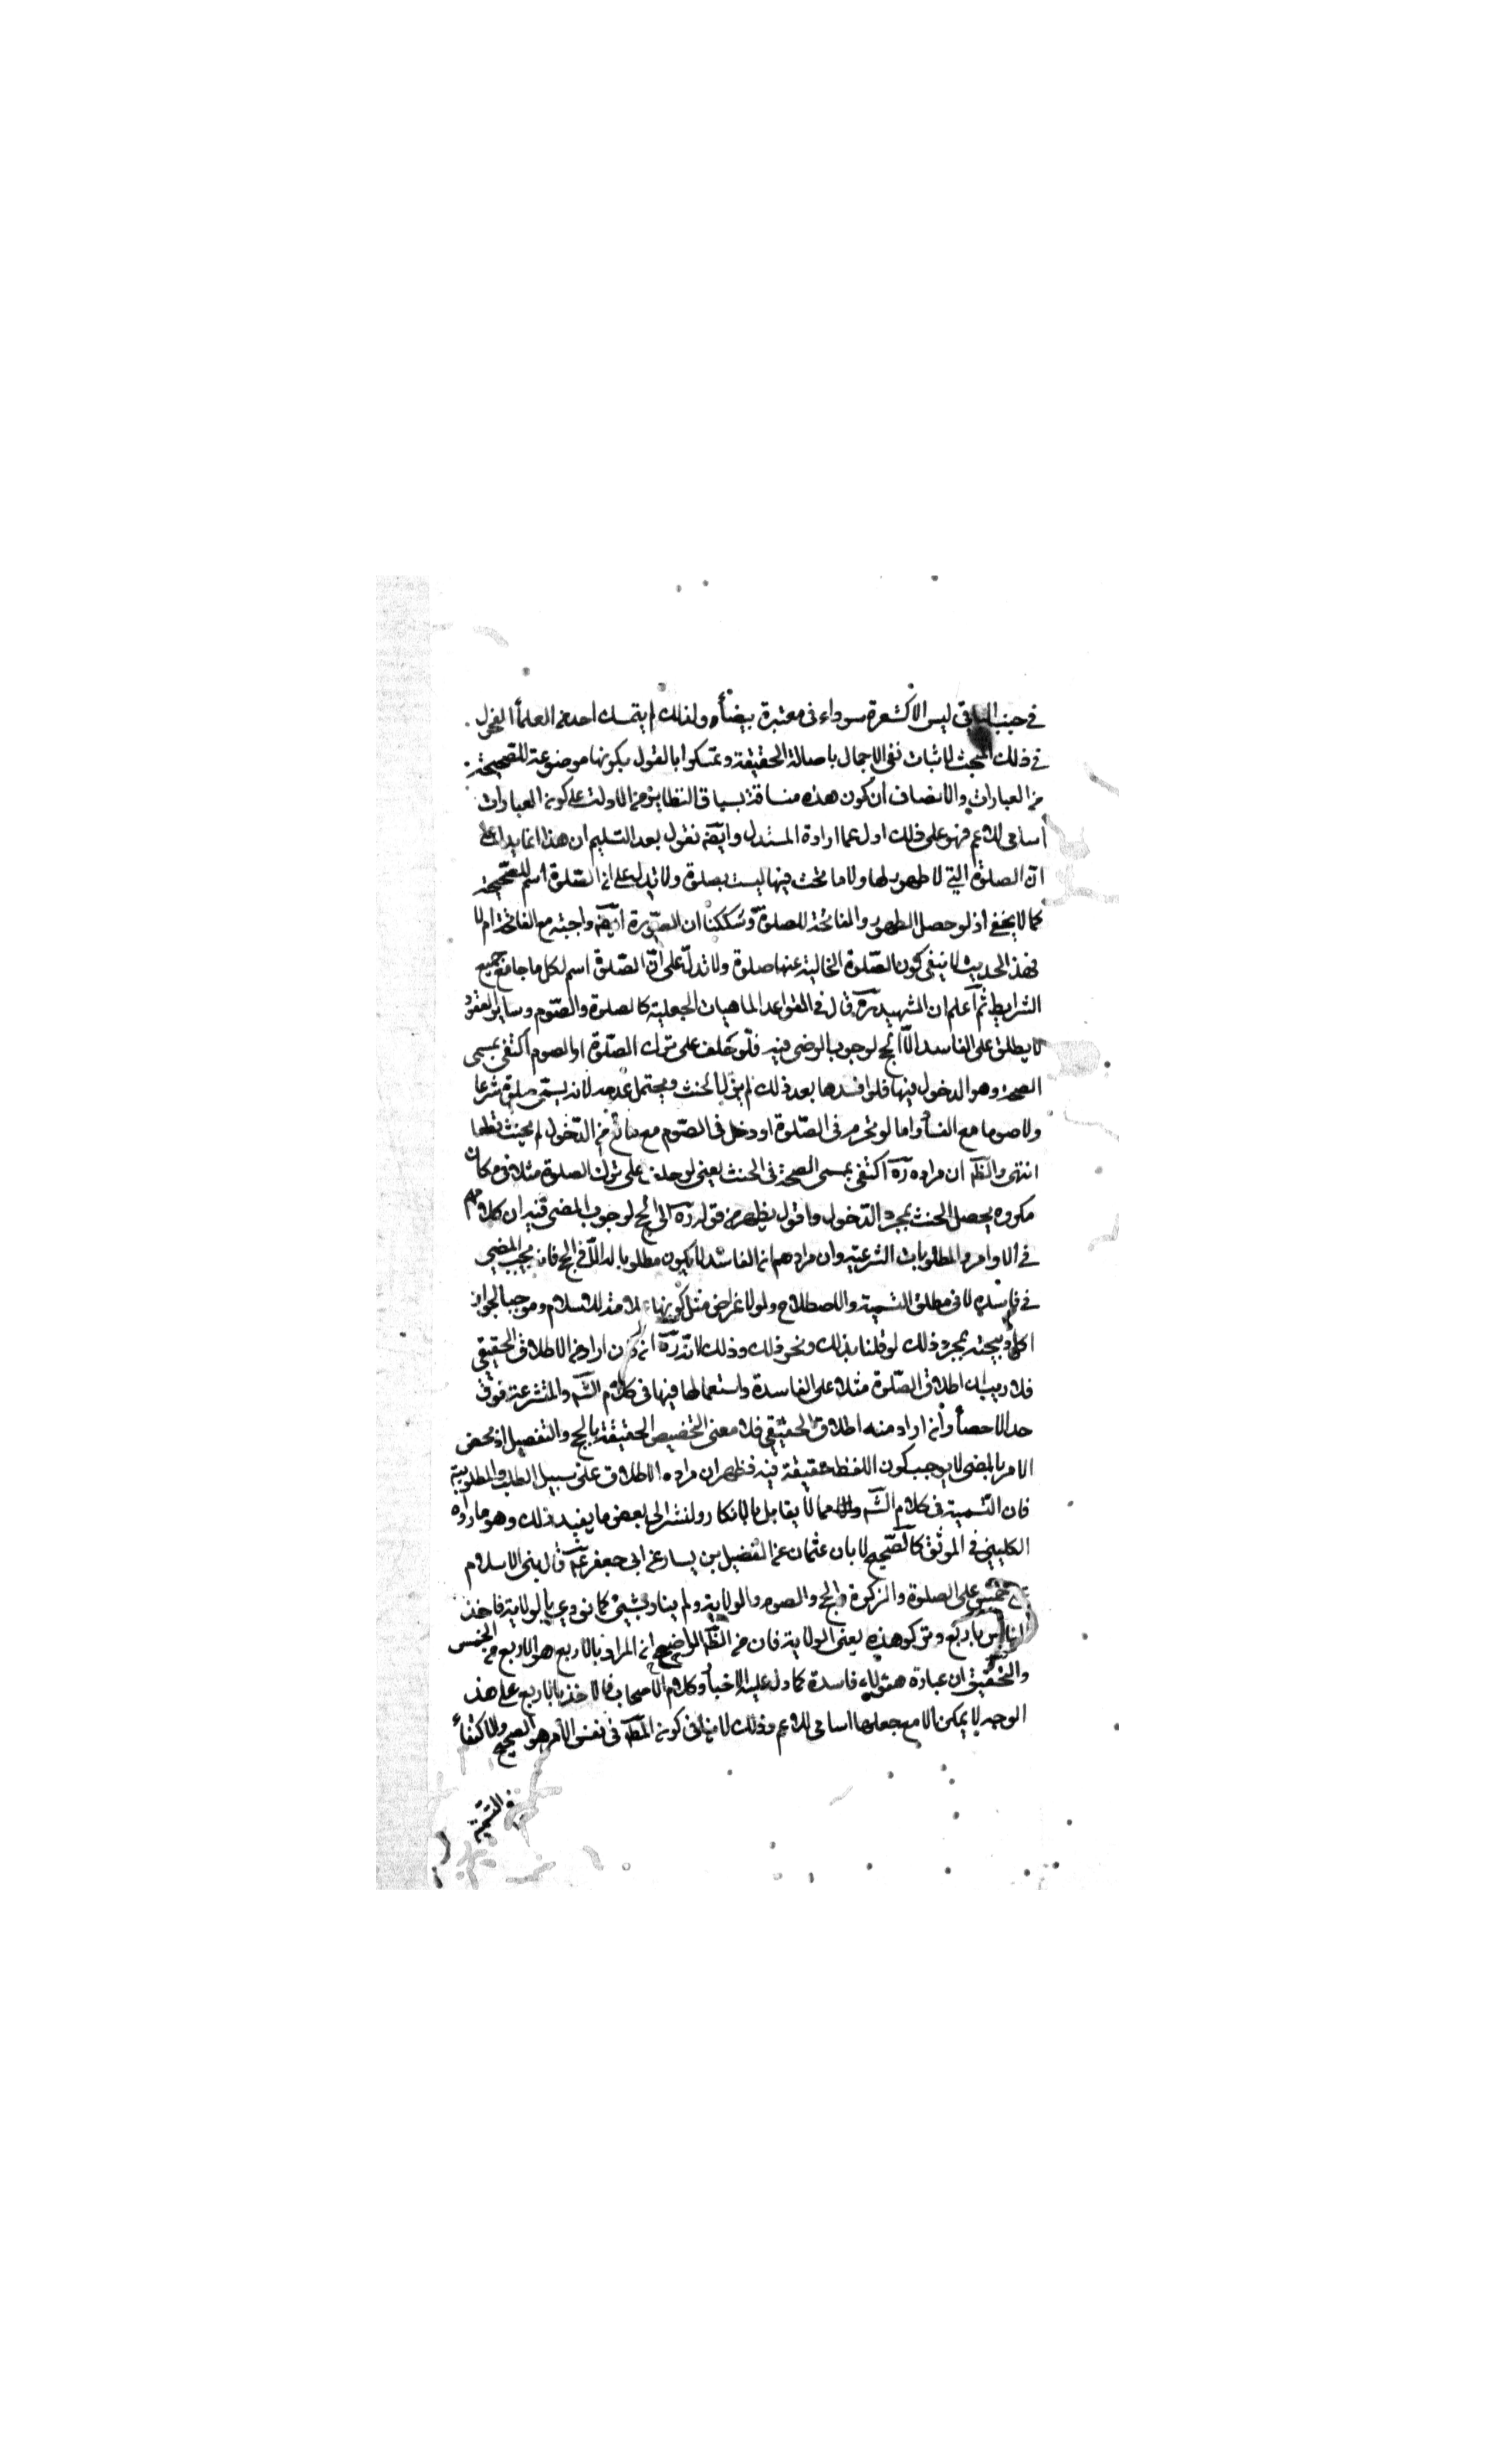 في جنب الباقي ليس الا كشعرة سوداء في معتبرة بيضاء ولذلك لم يتمسك احد من العلماء الفحول
في ذلك المبحث لاثبات نفي الاجمال باصالة الحقيقة وتمسكوا بالقول بكونها موضوعة للصحيحة
من العبارات والانصاف ان كون هذه منساقة بسياق النظاير من الادلة على كون العبارات
اسامي للاعم فهو على ذلك ادل مما اراده المستدل وايضا نقول بعد التسليم ان هذا انما يدل على
ان الصلوة التي لا طهور لها ولا فاتحة فيها ليست بصلوة ولا يدل على ان الصلوة اسم للصحيحة
كما لا يخفى اذ لو حصل الطهور والفاتحة للصلوة وشككنا ان السورة ايضا واجبة مع الفاتحة ام لا
فهذا الحديث لا ينفي كون الصلوة الخالية عنها صلوة ولا تدل على ان الصلوة اسم لكل ما جامع جميع
الشرايط ثم اعلم ان الشهيد ره قال في القواعد الماهيات الجعلية كالصلوة والصوم وساير العقود
لا يطلق على الفاسد الا الحج لوجوب المضي فيه فلو حلف على ترك الصلوة او الصوم اكتفى بمسمى
الصحة وهو الدخول فيها فلو افسدها بعد ذلك لم يزل الحنث ويحتمل عدمه لانه لا يسمى صلوة شرعا
ولا صوما مع الفساد واما لو تحرم في الصلوة او دخل في الصوم مع مانع من الدخول لم يحنث قطعا
انتهى والظ ان مراده ره اكتفى بمسمى الصحة في الحنث يعني لو حلف على ترك الصلوة مثلا في مكان
مكروه يحصل الحنث بمجرد الدخول واقول يظهر من قوله ره الا الحج لوجوب المضي فيه ان كلامهم
في الاوامر والمطلوبات الشرعية وان مرادهم ان الفاسد لا يكون مطلوبا له الا في الحج فانه يجب المضي
في فاسده لا في مطلق التسمية والاصطلاح ولو لاغراض مثل كونها علامة للاسلام وموجبا لجواز
اكل ذبيحته بمجرد ذلك لو قلنا بذلك ونحو ذلك وذلك لانه ره ان كان اراد من الاطلاق الحقيقي
فلا ريب ان اطلاق الصلوة مثلا على الفاسدة واستعمالها فيها في كلام الش والمتشرعة فوق
حد الاحصاء وان اراد منه اطلاق الحقيقي فلا معنى لتخصيص الحقيقة بالحج والتفصيل اذ محض
الامر بالمضي لا يوجب كون اللفظ حقيقة فيه فظهر ان مراده الاطلاق على سبيل الطلب والمطلوبية
فان التسمية في كلام الش مما لا يقابل بالانكار ولنشر الى بعض ما يفيد ذلك وهو ما رواه
الكليني في الموثق كالصحيح لابان عثمان عن الفضيل بن يسار عن ابي جعفر ع قال بني الاسلام
على خمس على الصلوة والزكوة والحج والصوم والولاية ولم يناد بشيء كما نودي بالولاية فاخذ
الناس باربع وتركو هذه يعني الولاية فان من الظ الواضح ان المراد بالاربع هو الاربع من الخمس
والتحقيق ان عبادة هؤلاء فاسدة كما دل عليه الاخبار وكلام الاصحاب فالاخذ بالاربع على هذ
الوجه لا يمكن الا مع جعلها اسامي للاعم وذلك لا ينافي كون المط في نفس الامر هو الصحيح والاكتفاء
في التسمية